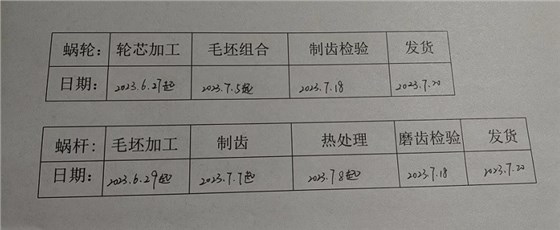 蜗轮： 轮芯加工 毛坯组合 制齿检验 发货
日期： 2023.6.27起 2023.7.5起 2023.7.18 2023.7.20
蜗杆: 毛坯加工 制齿 热处理 磨齿检验 发货
日期： 2023.6.29起 2023.7.7起 2023.7 8起 2023.7.18 2023.7.20